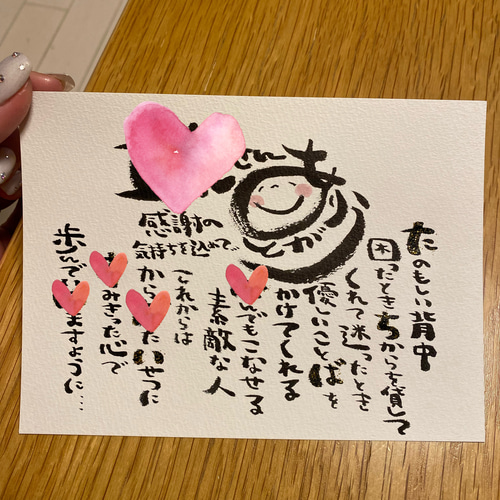 さん
ありがとう
感謝の
気持ちを込めて、
たのもしい背中
困ったときちからを貸して
くれて迷ったとき
優しいことばを
かけてくれる
んでもこなせる
素敵な人
これからは
からたいせつに
みきった心で
歩んでますように…